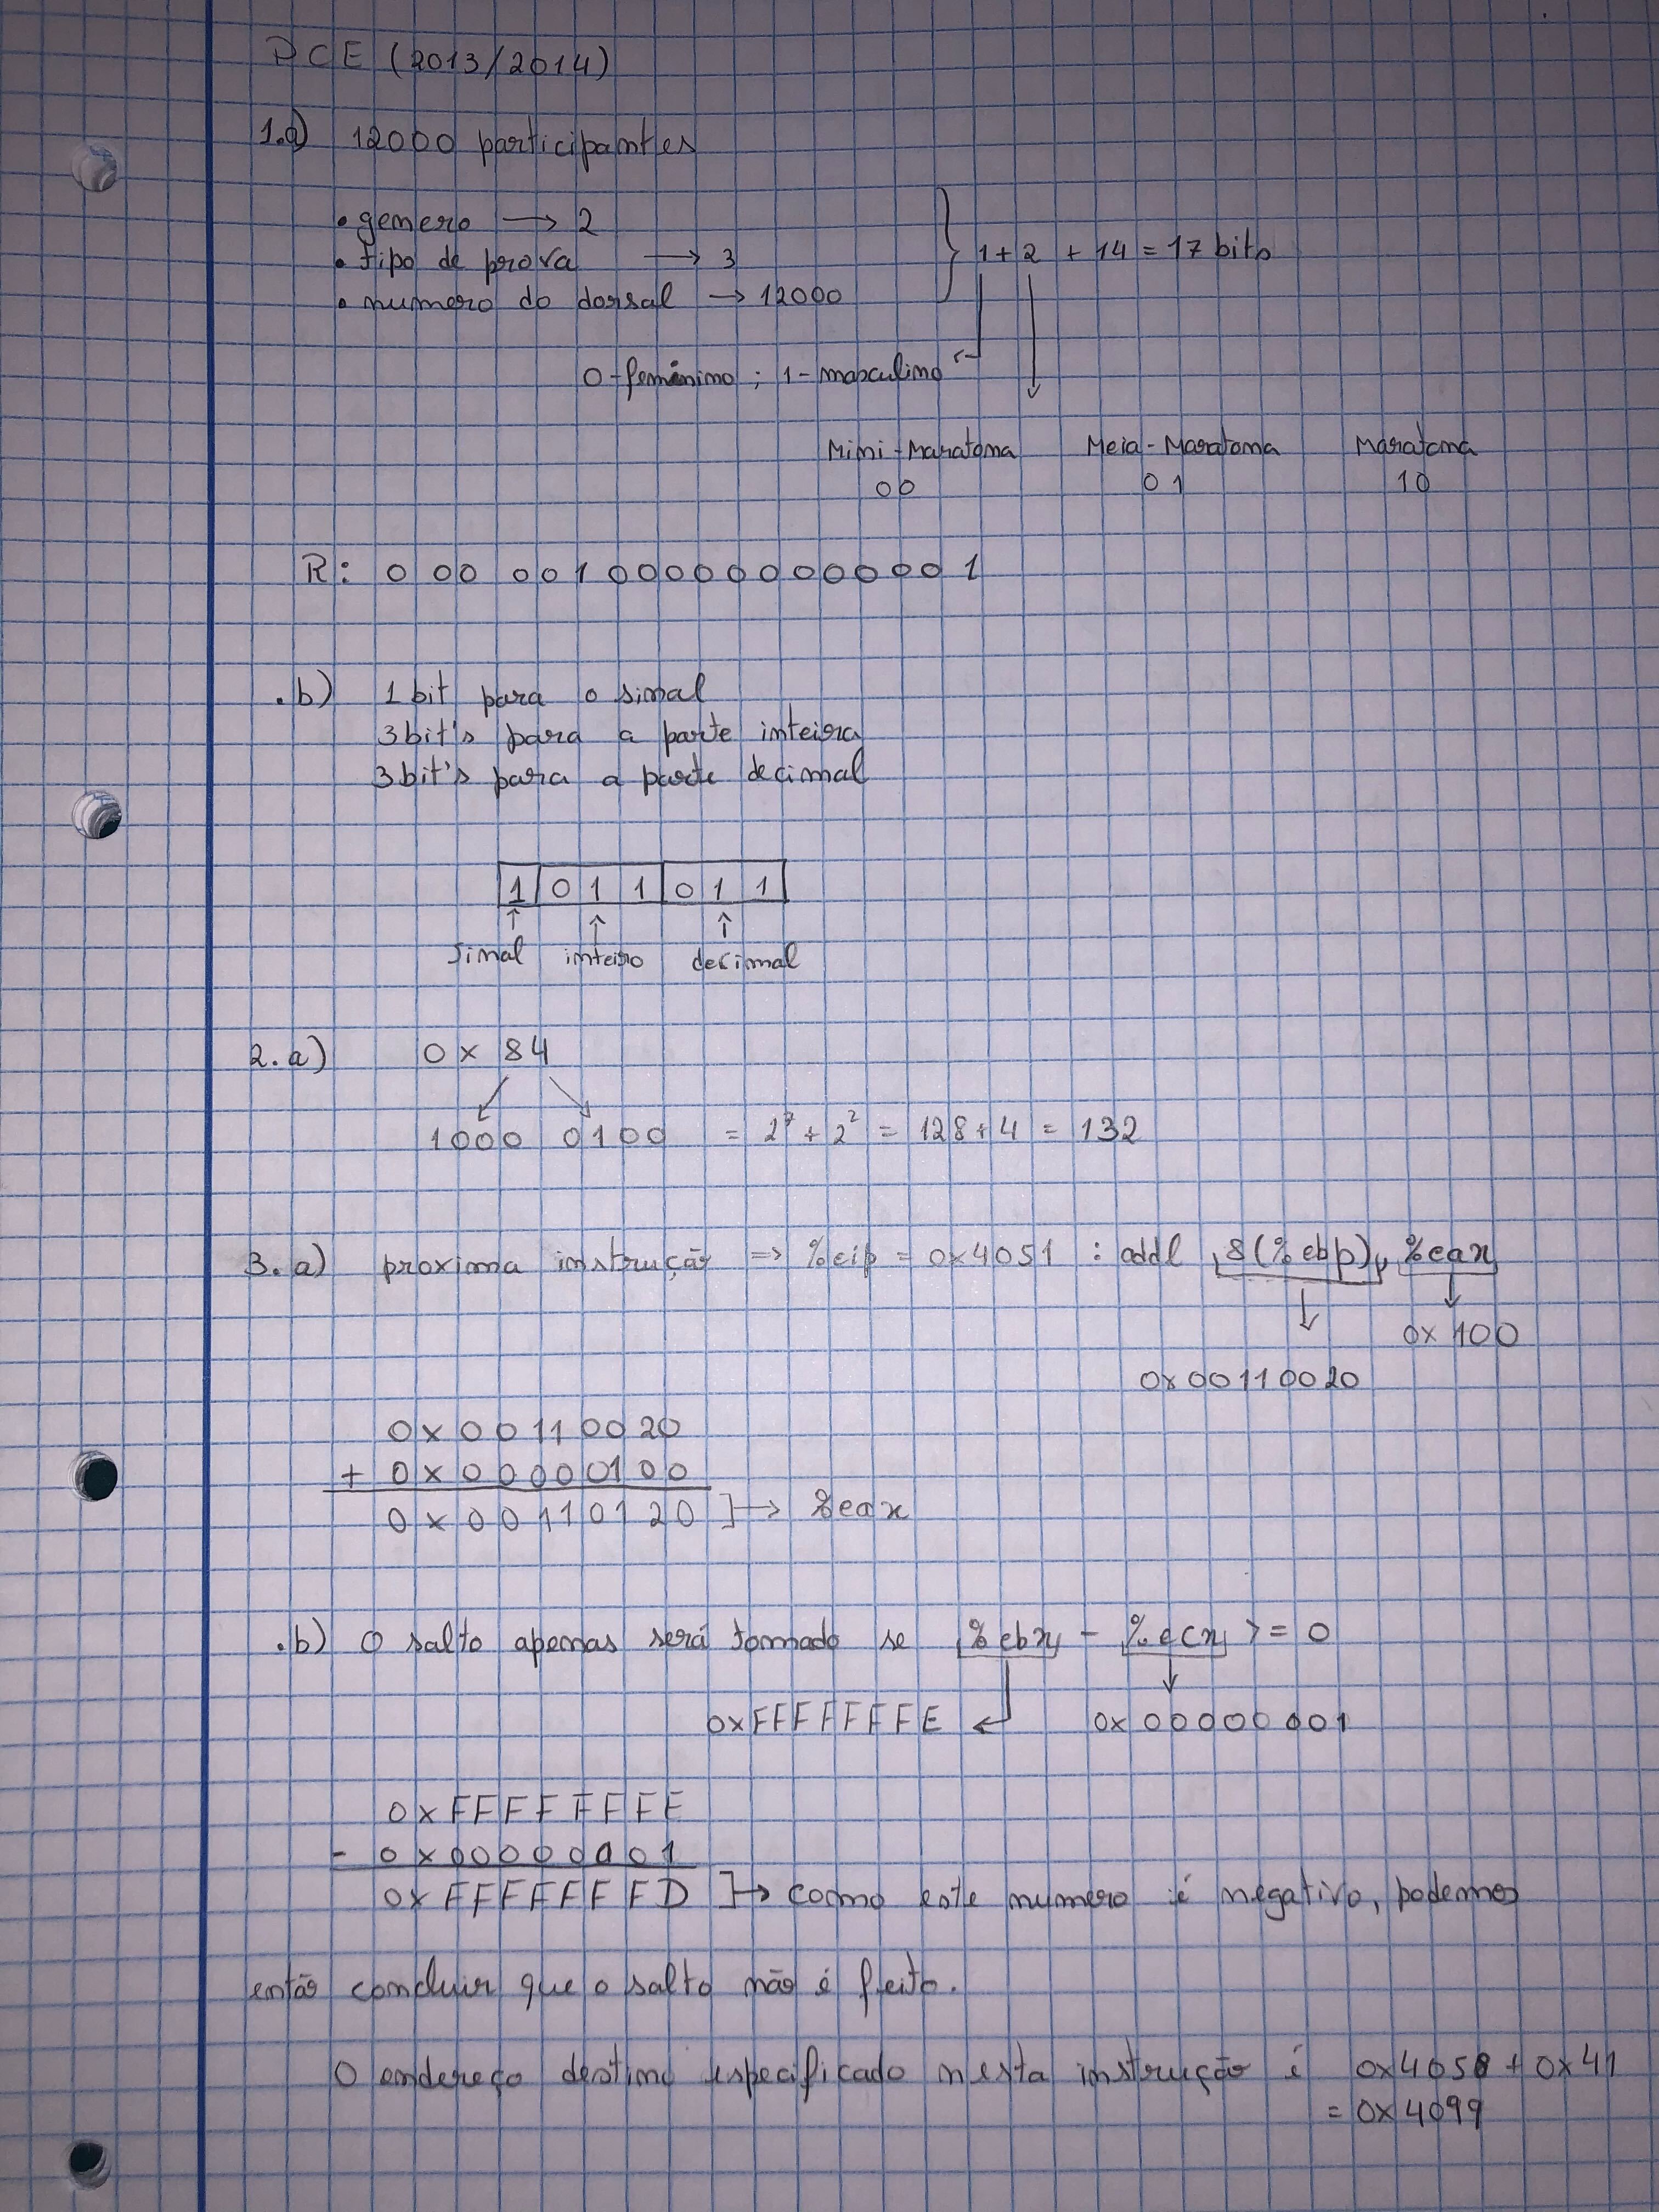 PCE (2013/2014)
1.a) 12000 participantes
• genero → 2
• tipo de prova → 3
• numero do dorsal → 12000
1 + 2 + 14 = 17 bits
0-feminino ; 1-masculino
Mini-Maratona Meia-Maratona Maratona
00 01 10
R: 0 00 00100000000001
.b) 1 bit para o sinal
3 bit's para a parte inteira
3 bit's para a parte decimal
1 0 1 1 0 1 1
↑ ↑ ↑
sinal inteiro decimal
2.a) 0x84
1000 0100 = 2⁷ + 2² = 128+4 = 132
3.a) proxima instrução => %eip = 0x4051 : addl 8(%ebp), %eax
0x100
0x00110020
0x00110020
+ 0x00000100
0x00110120 ]→ %eax
.b) O salto apenas será tomado se %ebx - %ecx >= 0
0xFFFFFFFE ↵ 0x00000001
0xFFFFFFFE
- 0x00000001
0xFFFFFFFD ]→ como este numero é negativo, podemos
então concluir que o salto não é feito.
O endereço destino especificado nesta instrução é 0x4058 + 0x41
= 0x4099